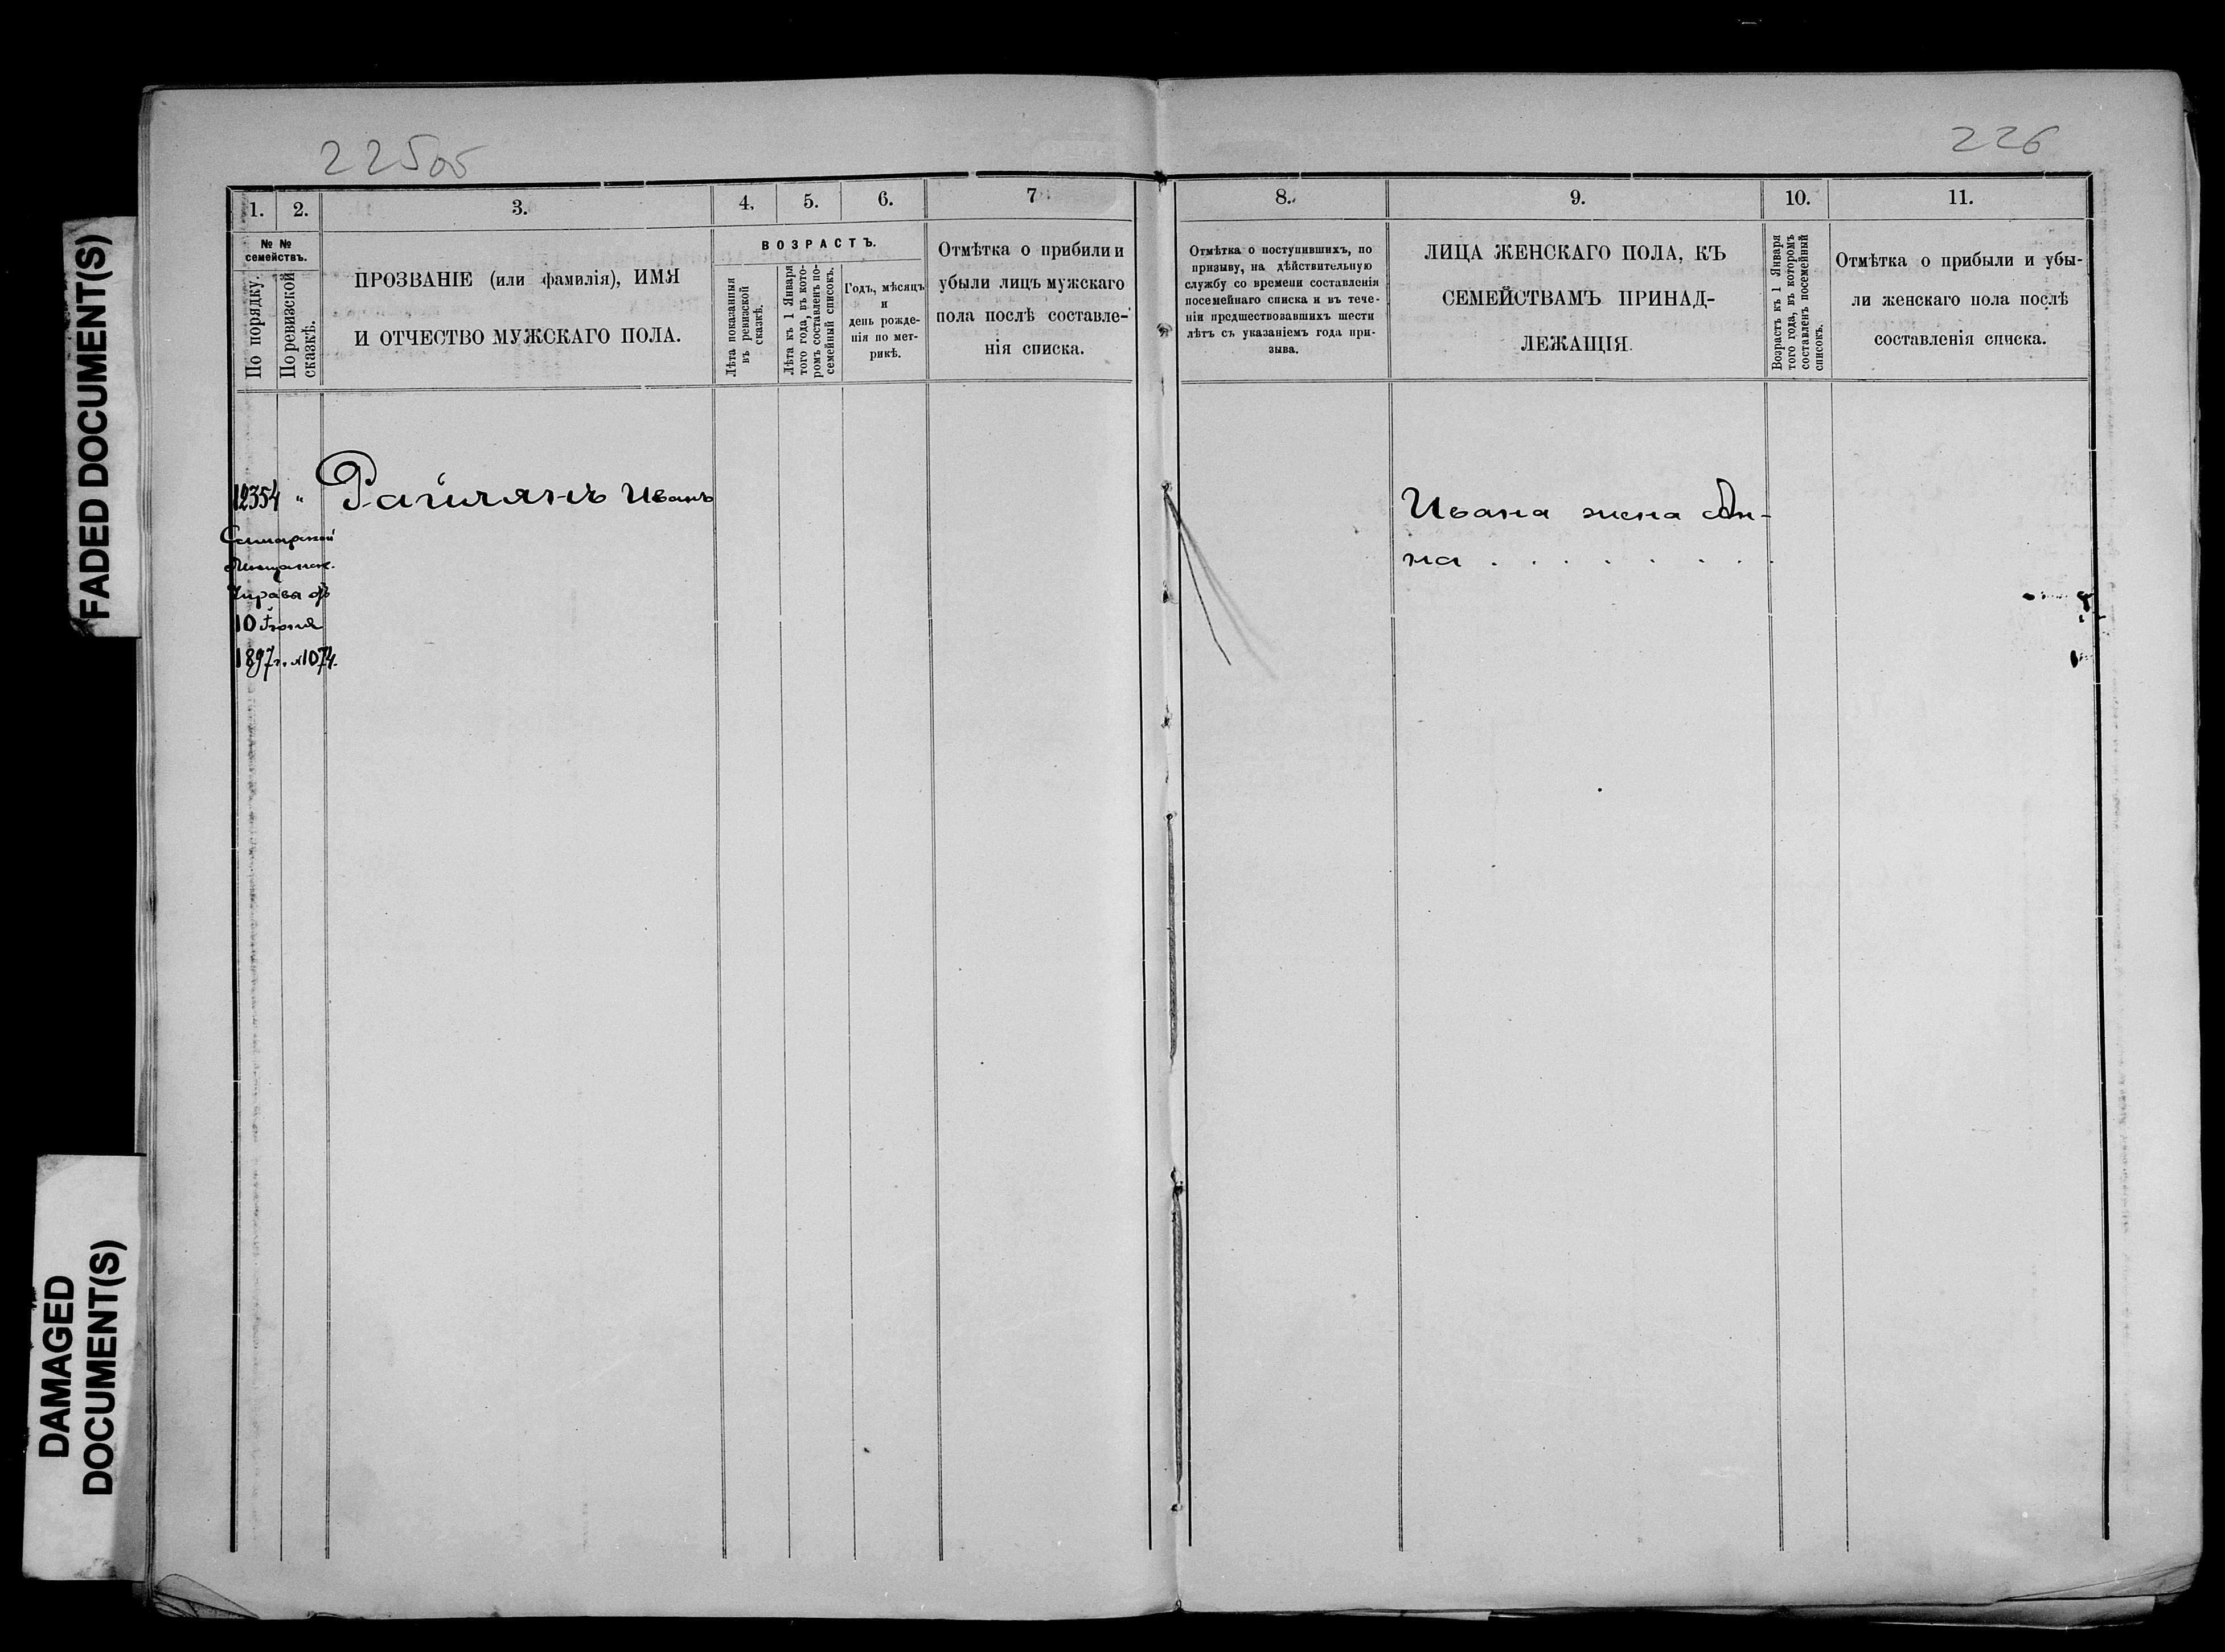 FADED DOCUMENT(S)
DAMAGED
DOCUMENT(S)
225об
1. 2. 3. 4. 5. 6. 7
№ №
семействъ.
По порядку.
По ревизской
сказкѣ.
ПРОЗВАНІЕ (или фамилія), ИМЯ
И ОТЧЕСТВО МУЖСКАГО ПОЛА.
ВОЗРАСТЪ.
Лѣта показанныя
въ ревизской
сказкѣ.
Лѣта къ 1 Января
того года, въ кото-
ромъ составленъ по-
семейный списокъ.
Годъ, мѣсяцъ
и
день рожде-
нія по мет-
рикѣ.
Отмѣтка о прибили и
убыли лицъ мужскаго
пола послѣ составле-
нія списка.
12354 " Иванъ
Самарской
Мещанск.
Управы отъ
10 Іюня
1897г. №1074.
226
8. 9. 10. 11.
Отмѣтка о поступившихъ, по
призыву, на дѣйствительную
службу со времени составленія
посемейнаго списка и въ тече-
ніи предшествовавшихъ шести
лѣтъ съ указаніемъ года при-
зыва.
ЛИЦА ЖЕНСКАГО ПОЛА, КЪ
СЕМЕЙСТВАМЪ ПРИНАД-
ЛЕЖАЩІЯ.
Возрастъ къ 1 Января
того года, въ которомъ
составленъ посемейный
списокъ.
Отмѣтка о прибыли и убы-
ли женскаго пола послѣ
составленія списка.
Ивана жена Ан-
на . . . . . . . .